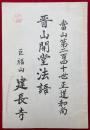 當山第二百四十世正道和尚
晋山開堂法語
巨福山
建長寺